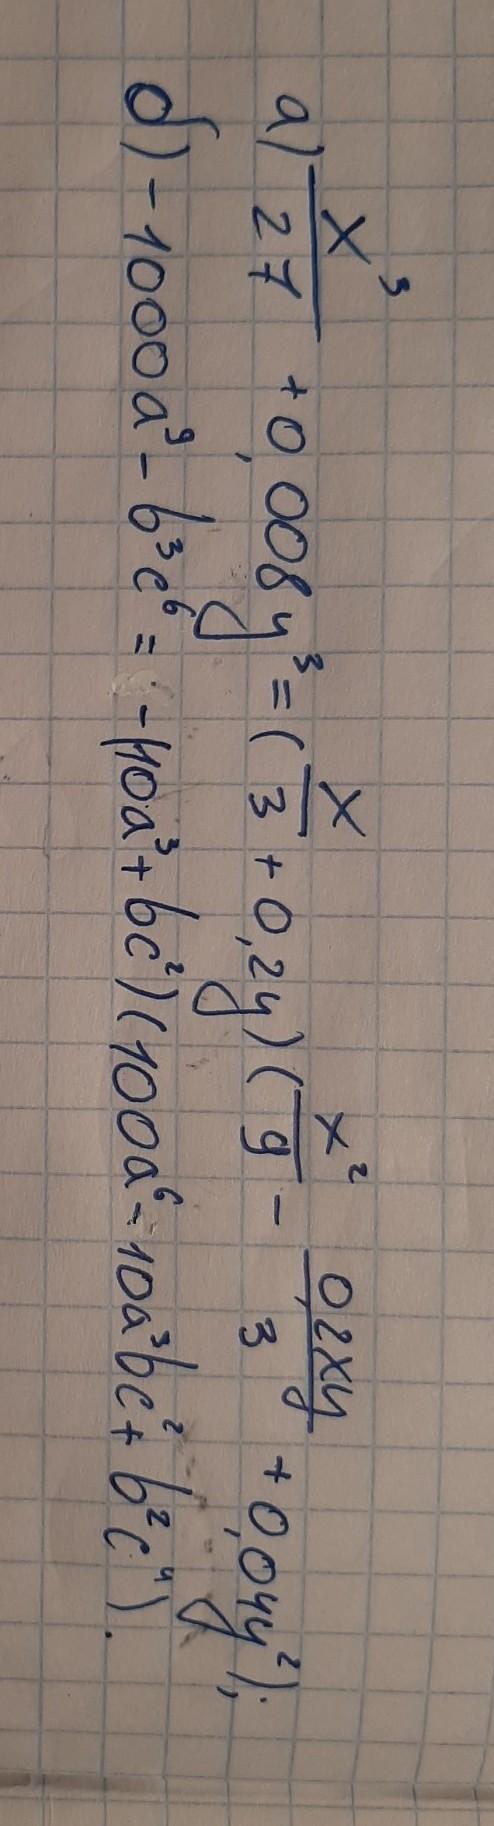 а) x³/27 + 0,008y³ = (x/3 + 0,2y)(x²/9 - 0,2xy/3 + 0,04y²);
б) -1000a⁹ - b³c⁶ = -(10a³ + bc²)(100a⁶ - 10a³bc² + b²c⁴).